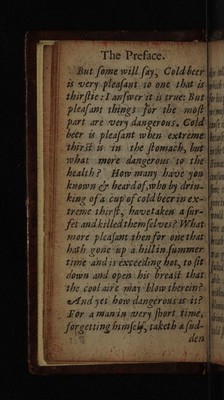 The Preface.
But ſome will ſay, Cold beer
is very pleaſant to one that is
thirſtie: I anſwer it is true: But
pleaſant things for the moſt
part are very dangerous. Cold
beer is pleaſant when extreme
thirst is in the ſtomach, but
what more dangerous to the
health? How many have you
known & heard of, who by drin-
king of a cup of cold beer in ex-
treme thirſt, have taken a ſur-
fet and killed themſelves? What
more pleaſant then for one that
hath gone up a hill in ſummer
time and is exceeding hot, to ſit
down and open his breaſt that
the cool aire may blow therein?
And yet how dangerous is it?
For a man in very ſhort time,
forgetting himſelf, taketh a ſud-
den